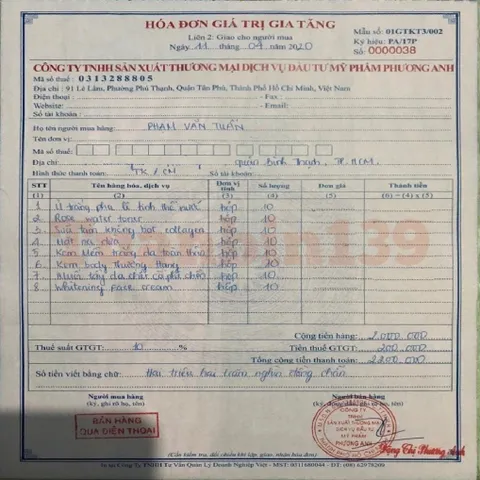 HÓA ĐƠN GIÁ TRỊ GIA TĂNG
Liên 2: Giao cho người mua
Ngày 11 tháng 04 năm 2020
Mẫu số: 01GTKT3/002
Ký hiệu: PA/17P
Số: 0000038
CÔNG TY TNHH SẢN XUẤT THƯƠNG MẠI DỊCH VỤ ĐẦU TƯ MỸ PHẨM PHƯƠNG ANH
Mã số thuế: 0313288805
Địa chỉ: 91 Lê Lâm, Phường Phú Thạnh, Quận Tân Phú, Thành Phố Hồ Chí Minh, Việt Nam
Điện thoại: - Fax:
Website: - Email:
Số tài khoản:
Họ tên người mua hàng: PHẠM VĂN TUẤN
Tên đơn vị:
Mã số thuế:
Địa chỉ: quận Bình Thạnh, TP. HCM.
Hình thức thanh toán: TK/CN Số tài khoản:
STT Tên hàng hóa, dịch vụ Đơn vị tính Số lượng Đơn giá Thành tiền
(1) (2) (3) (4) (5) (6) = (4) x (5)
1 Ủ trắng hộp 10
2 Rose water toner hộp 10
3 Sữa tắm collagen hộp 10
4 hộp 10
5 Kem mềm trắng da toàn thân hộp 10
6 Kem body Thượng Hạng hộp 10
7 Muối tẩy da chết cà phê hộp 10
8 Whitening face cream hộp 10
Cộng tiền hàng: 2.000.000
Thuế suất GTGT: 10 % Tiền thuế GTGT: 200.000
Tổng cộng tiền thanh toán: 2.200.000
Số tiền viết bằng chữ: Hai triệu hai trăm nghìn đồng chẵn
Người mua hàng Người bán hàng
(ký, ghi rõ họ, tên)
BÁN HÀNG
QUA ĐIỆN THOẠI
CÔNG TY
TNHH
SẢN XUẤT THƯƠNG MẠI
DỊCH VỤ ĐẦU TƯ
MỸ PHẨM
PHƯƠNG ANH
(Cần kiểm tra, đối chiếu khi lập, giao nhận hóa đơn)
In tại Công Ty TNHH Tư Vấn Quản Lý Doanh Nghiệp Việt - MST: 0311680044 - ĐT: (08) 62978209